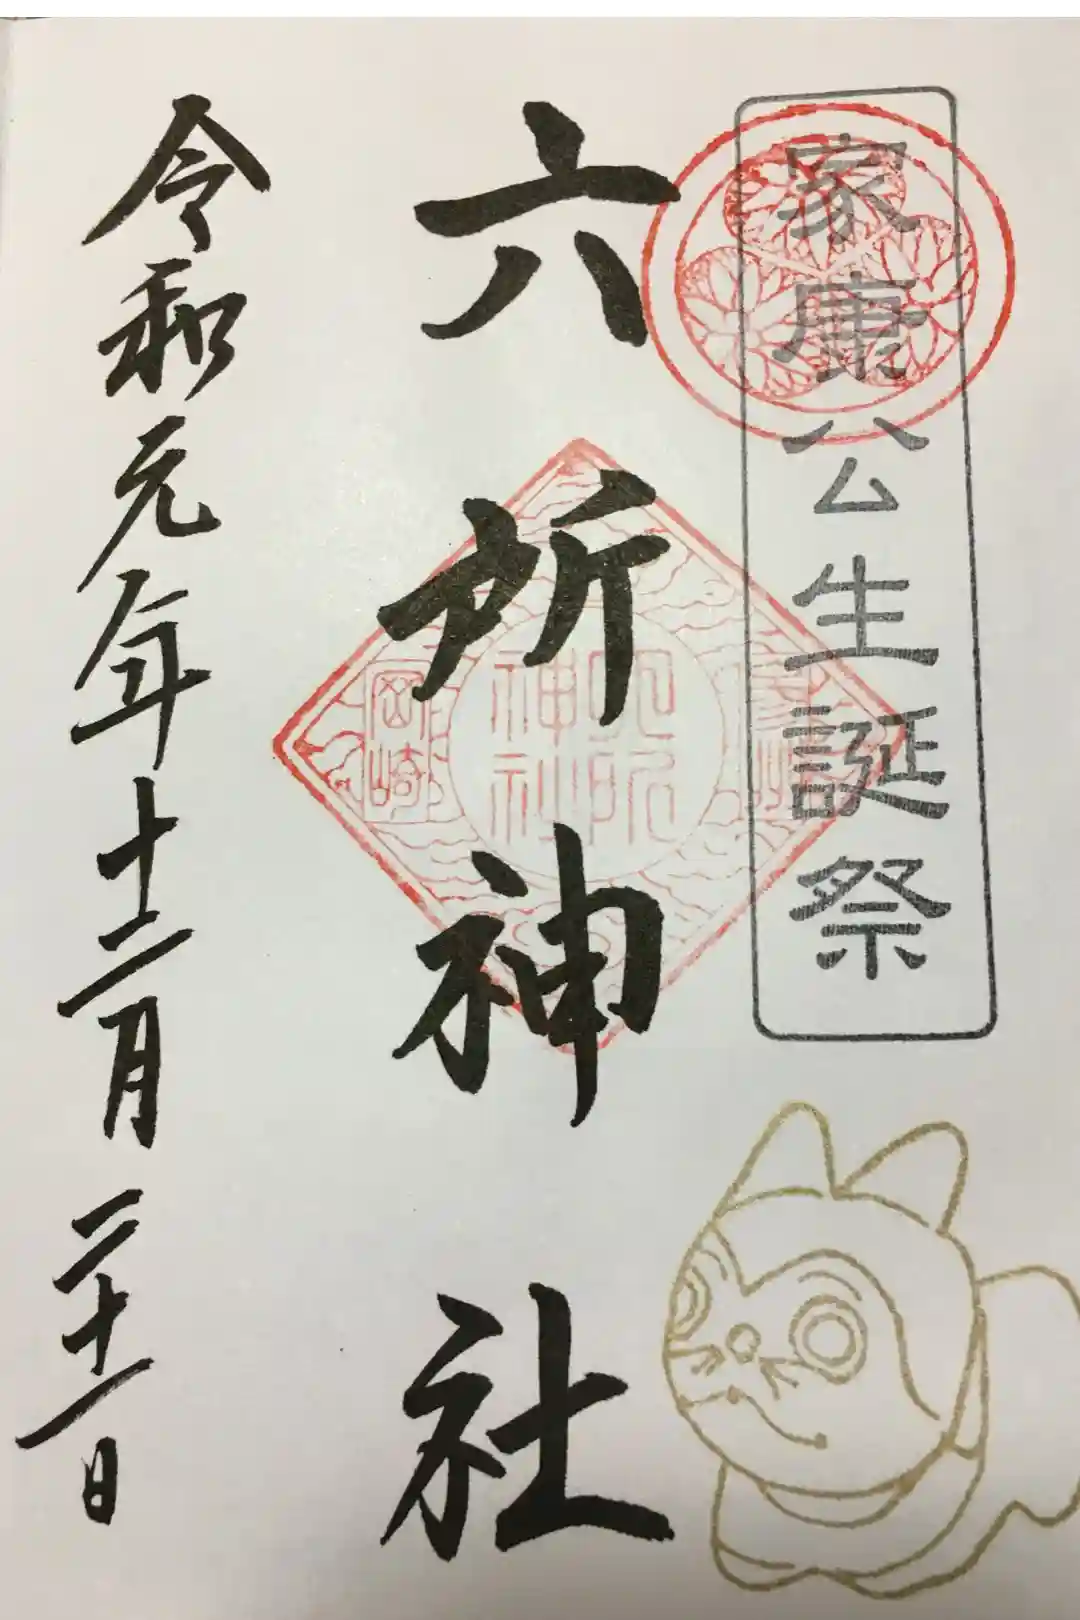 家康公生誕祭
六所神社
六所
神社
岡崎
令和元年十二月二十一日